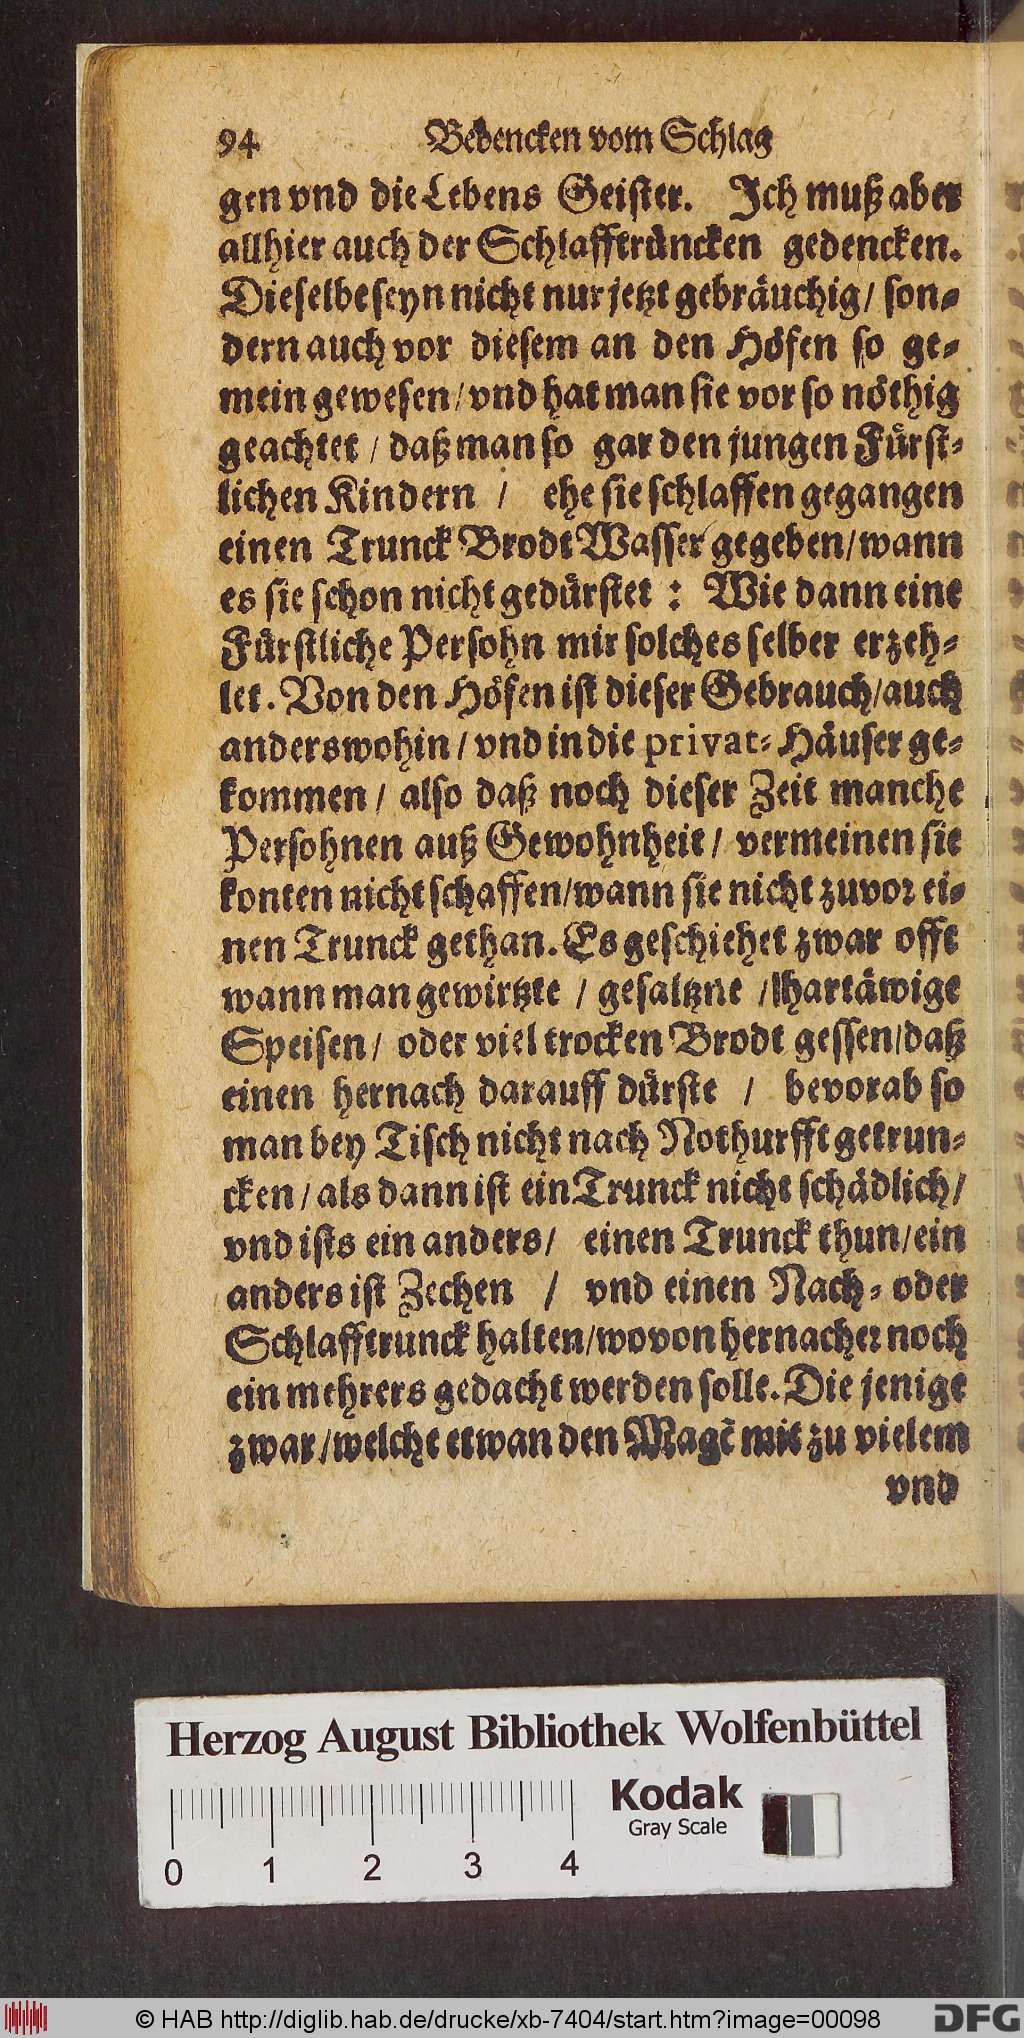 94 Bedencken vom Schlag
gen vnd die Lebens Geister. Ich muß aber
allhier auch der Schlafftruncken gedencken.
Dieselbe seyn nicht nur jetzt gebräuchig/ son-
dern auch vor diesem an den Höfen so ge-
mein gewesen/ vnd hat man sie vor so nöthig
geachtet / daß man so gar den jungen Fürst-
lichen Kindern / ehe sie schlaffen gegangen
einen Trunck Brodt Wasser gegeben/ wann
es sie schon nicht gedürstet : Wie dann eine
Fürstliche Persohn mir solches selber erzeh-
let. Von den Höfen ist dieser Gebrauch/ auch
anderswohin / vnd in die privat- Häuser ge-
kommen / also daß noch dieser Zeit manche
Persohnen auß Gewohnheit / vermeinen sie
konten nicht schaffen/ wann sie nicht zuvor ei-
nen Trunck gethan. Es geschiehet zwar offt
wann man gewirtzte / gesaltzne / hartäwige
Speisen / oder viel trocken Brodt gessen/ daß
einen hernach darauff dürste / bevorab so
man bey Tisch nicht nach Nothurfft getrun-
cken / als dann ist ein Trunck nicht schädlich /
vnd ists ein anders / einen Trunck thun/ ein
anders ist Zechen / vnd einen Nach- oder
Schlafftrunck halten/ wovon hernacher noch
ein mehrers gedacht werden solle. Die jenige
zwar / welche etwan den Magē mit zu vielem
vnd
Herzog August Bibliothek Wolfenbüttel
Kodak
Gray Scale
0 1 2 3 4
© HAB http://diglib.hab.de/drucke/xb-7404/start.htm?image=00098
DFG